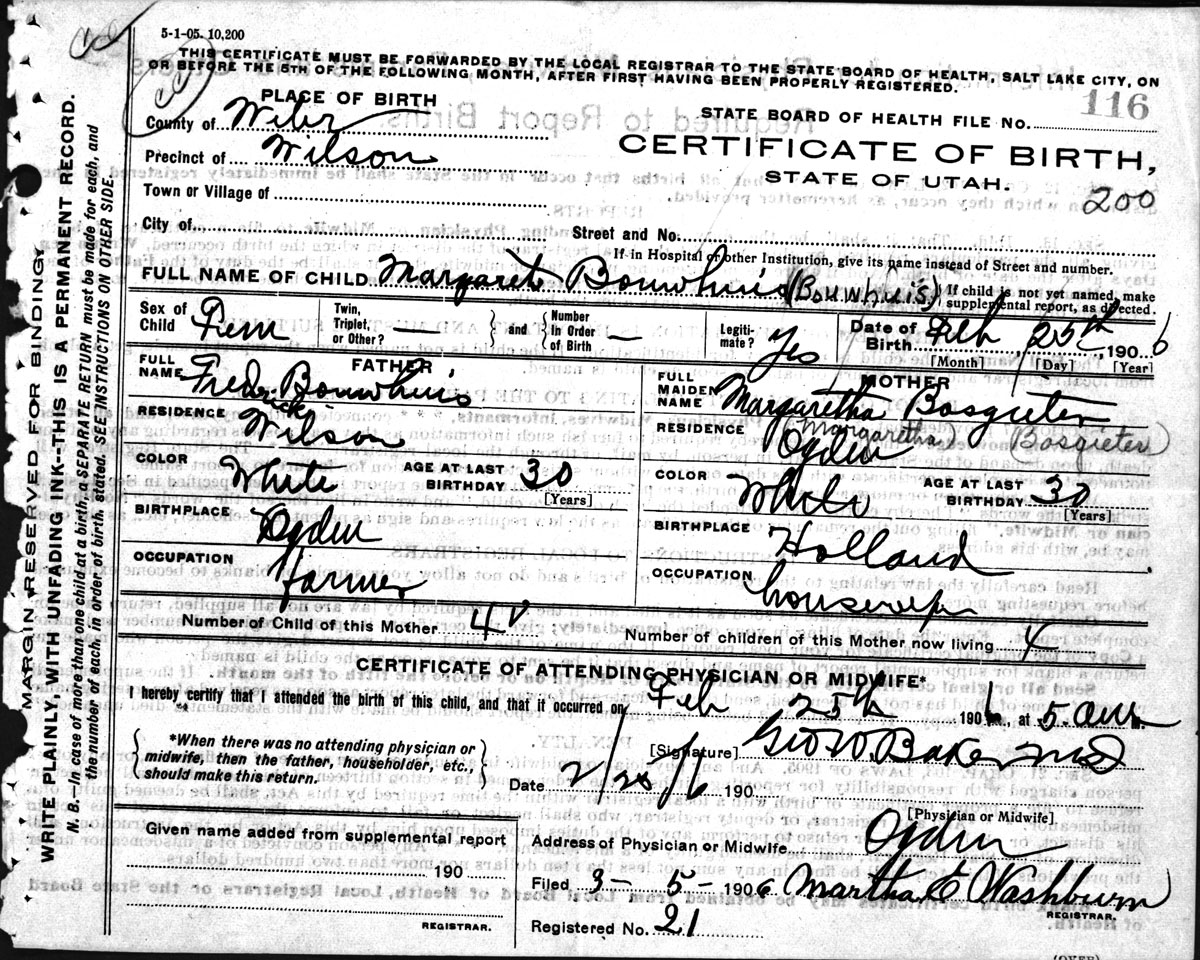 5-1-05. 10,200
THIS CERTIFICATE MUST BE FORWARDED BY THE LOCAL REGISTRAR TO THE STATE BOARD OF HEALTH, SALT LAKE CITY, ON
OR BEFORE THE 5TH OF THE FOLLOWING MONTH, AFTER FIRST HAVING BEEN PROPERLY REGISTERED.
PLACE OF BIRTH
STATE BOARD OF HEALTH FILE No. 116
County of Weber
CERTIFICATE OF BIRTH,
Precinct of Wilson
STATE OF UTAH.
200
Town or Village of
City of
Street and No.
If in Hospital or other Institution, give its name instead of Street and number.
FULL NAME OF CHILD Margaret Bouwhuis (Bouwhuis)
If child is not yet named, make supplemental report, as directed.
Sex of Child Fem
Twin, Triplet, or Other? —
and
Number in Order of Birth —
Legiti-mate? Yes
Date of Birth Feb 25th, 1906
[Month] [Day] [Year]
FATHER
FULL NAME Fredrick Bouwhuis
RESIDENCE Wilson
COLOR White
AGE AT LAST BIRTHDAY 30
[Years]
BIRTHPLACE Ogden
OCCUPATION Farmer
MOTHER
FULL MAIDEN NAME Margaretha Bosgieter
(Margaretha Bosgieter)
RESIDENCE Ogden
COLOR White
AGE AT LAST BIRTHDAY 30
[Years]
BIRTHPLACE Holland
OCCUPATION housewife
Number of Child of this Mother 4
Number of children of this Mother now living 4
CERTIFICATE OF ATTENDING PHYSICIAN OR MIDWIFE*
I hereby certify that I attended the birth of this child, and that it occurred on Feb 25th 1906, at 5. am.
*When there was no attending physician or midwife, then the father, householder, etc., should make this return.
[Signature] Geo W Baker MD
Date 2/28/6 190
[Physician or Midwife]
Given name added from supplemental report
190
REGISTRAR.
Address of Physician or Midwife Ogden
Filed 3-5-1906 Martha E Washburn
REGISTRAR.
Registered No. 21
(OVER)
MARGIN RESERVED FOR BINDING
WRITE PLAINLY, WITH UNFADING INK--THIS IS A PERMANENT RECORD.
N. B.—In case of more than one child at a birth, a SEPARATE RETURN must be made for each, and
the number of each, in order of birth, stated. SEE INSTRUCTIONS ON OTHER SIDE